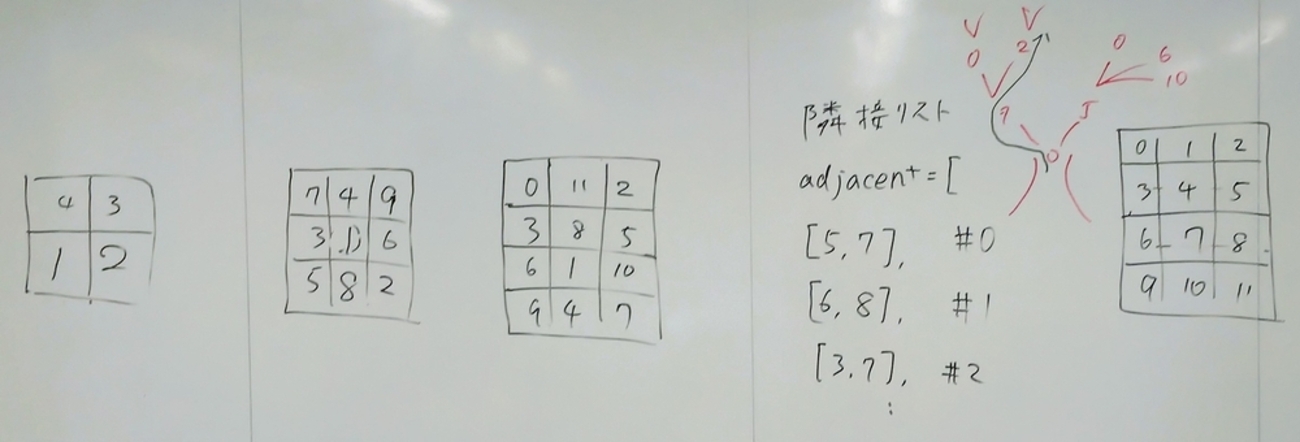 4 3
1 2
7 4 9
3 1 6
5 8 2
0 11 2
3 8 5
6 1 10
9 4 7
隣接リスト
adjacent = [
[5, 7], #0
[6, 8], #1
[3, 7], #2
:
V V
0 2
0
6
10
7 5
0
0 1 2
3 4 5
6 7 8
9 10 11